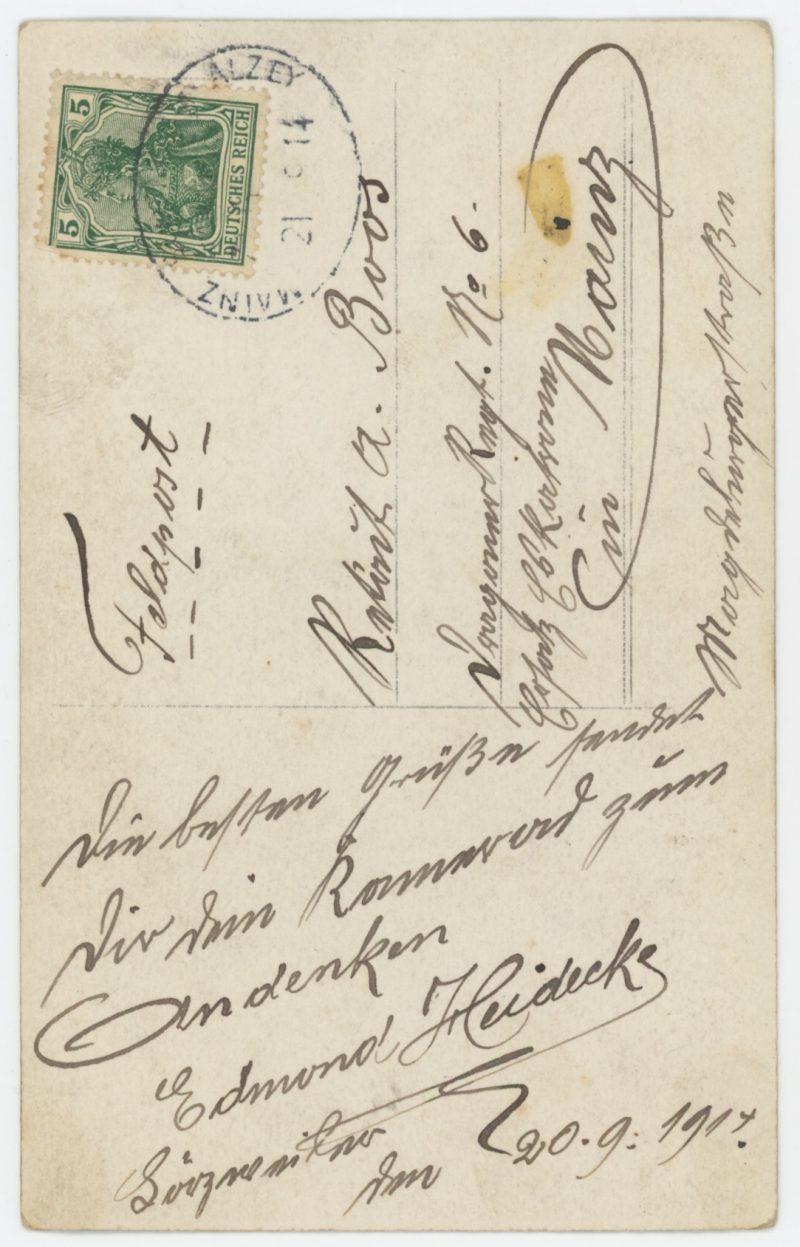 5
5
DEUTSCHES REICH
ALZEY
21 9 14
MAINZ
Feldpost
Rekrut A. Boos
Dragoner Regt. No 6.
Ersatz Eskatronn
in Mainz
Die besten Grüße sendet
Dir dein Kammerad zum
Andenken
Edmond Heidecke
Lörzweiler
den 20.9.1914.